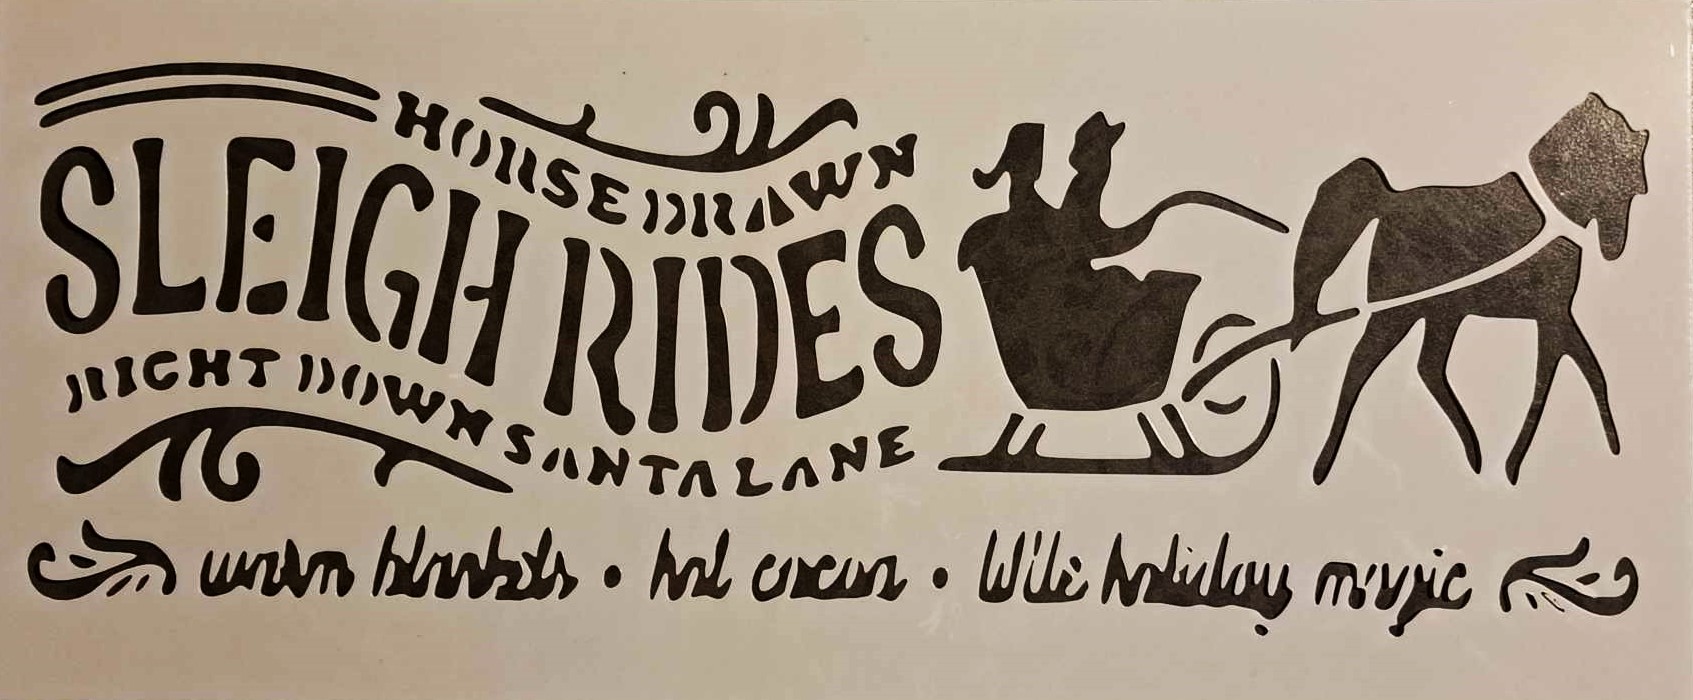 HORSE DRAWN
SLEIGH RIDES
RIGHT DOWN SANTA LANE
warm blankets • hot cocoa • holiday music